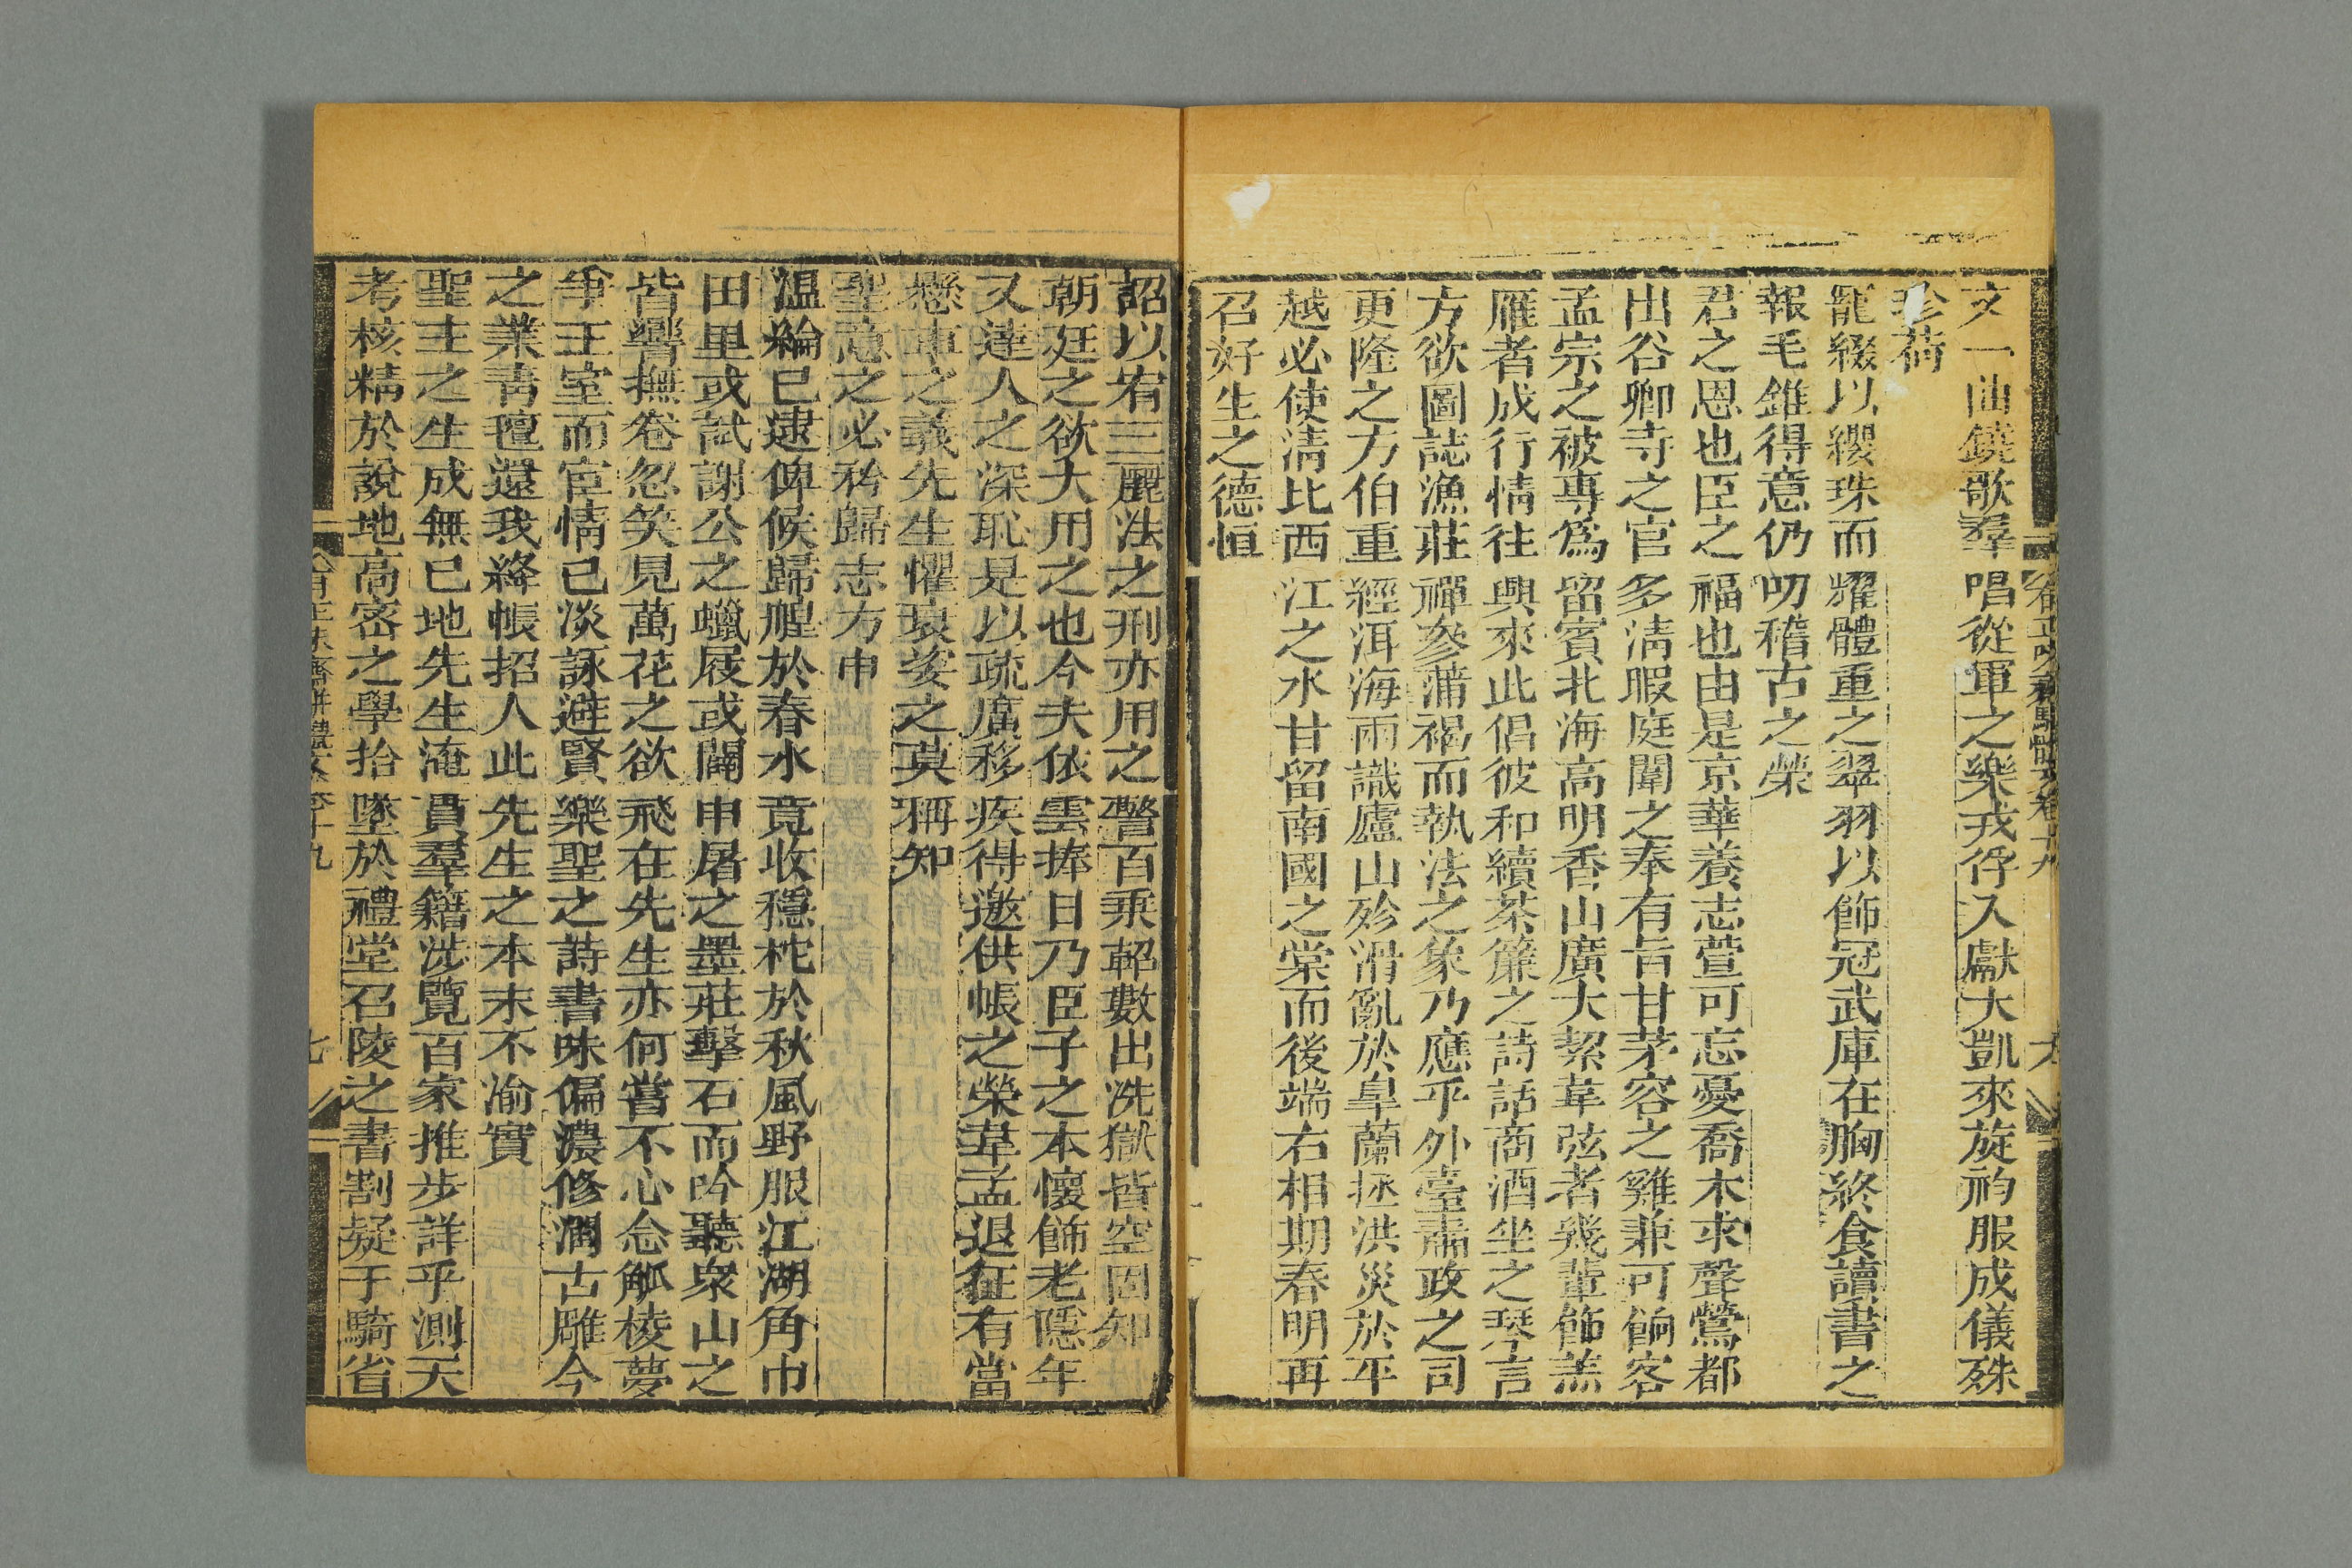 文一曲鐃歌羣唱從軍之樂戎俘入獻大凱來旋袀服成儀殊
珍荷
寵綴以纓珠而耀體重之翠羽以飾冠武庫在胸終食讀書之
報毛錐得意仍叨稽古之榮
君之恩也臣之福也由是京華養志萱可忘憂喬木求聲鶯都
出谷卿寺之官多淸暇庭闈之奉有旨甘茅容之雞兼可餉客
孟宗之被專爲留賓北海高明香山廣大絜韋弦者幾輩飾羔
雁者成行情往興來此倡彼和續茶簾之詩話商酒坐之琴言
方欲圖誌漁莊禪參蒲褐而執法之象乃應乎外臺肅政之司
更隆之方伯重經洱海雨識廬山殄滑亂於皐蘭拯洪災於平
越必使淸比西江之水甘留南國之棠而後端右相期春明再
召好生之德恒
詔以宥三麗法之刑亦用之警百乘軺數出冼獄皆空固知
朝廷之欲大用之也今夫依雲捧日乃臣子之本懷飾老隱年
又達人之深恥是以疏廣移疾得邀供帳之榮韋孟退征有當
懸車之義先生懼袞娑之莫稱知
聖意之必矜歸志方申
溫綸已逮俾候歸艎於春水竟收穩柁於秋風野服江湖角巾
田里或試謝公之蠟屐或闢申屠之墨莊擊石而吟聽衆山之
皆響撫卷忽笑見萬花之欲飛在先生亦何嘗不心念觚棱夢
爭王室而宦情已淡詠避賢樂聖之詩書味偏濃修潤古雕今
之業靑氊還我絳帳招人此先生之本末不渝實
聖主之生成無已地先生淹貫羣籍涉覽百家推步詳乎測天
考核精於說地高密之學拾墜於禮堂召陵之書割疑于騎省
七